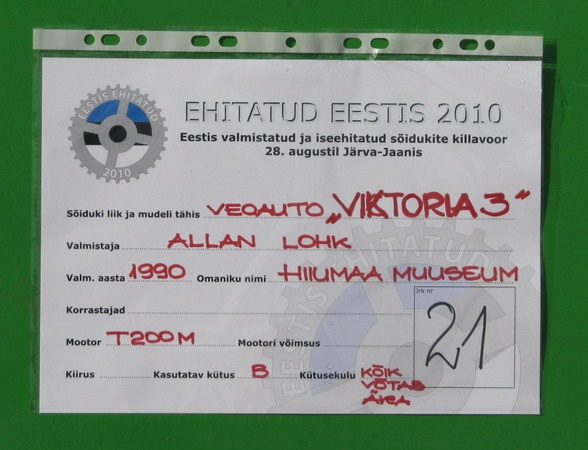 EESTIS EHITATUD
2010
EHITATUD EESTIS 2010
Eestis valmistatud ja iseehitatud sõidukite killavoor
28. augustil Järva-Jaanis
Sõiduki liik ja mudeli tähis VEOAUTO „VIKTORIA 3"
Valmistaja ALLAN LOHK
Valm. aasta 1990 Omaniku nimi HIIUMAA MUUSEUM
Korrastajad
Jrk nr
21
Mootor T200M Mootori võimsus
Kiirus Kasutatav kütus B Kütusekulu KÕIK
VÕTAB
ÄRA
EESTIS EHITATUD